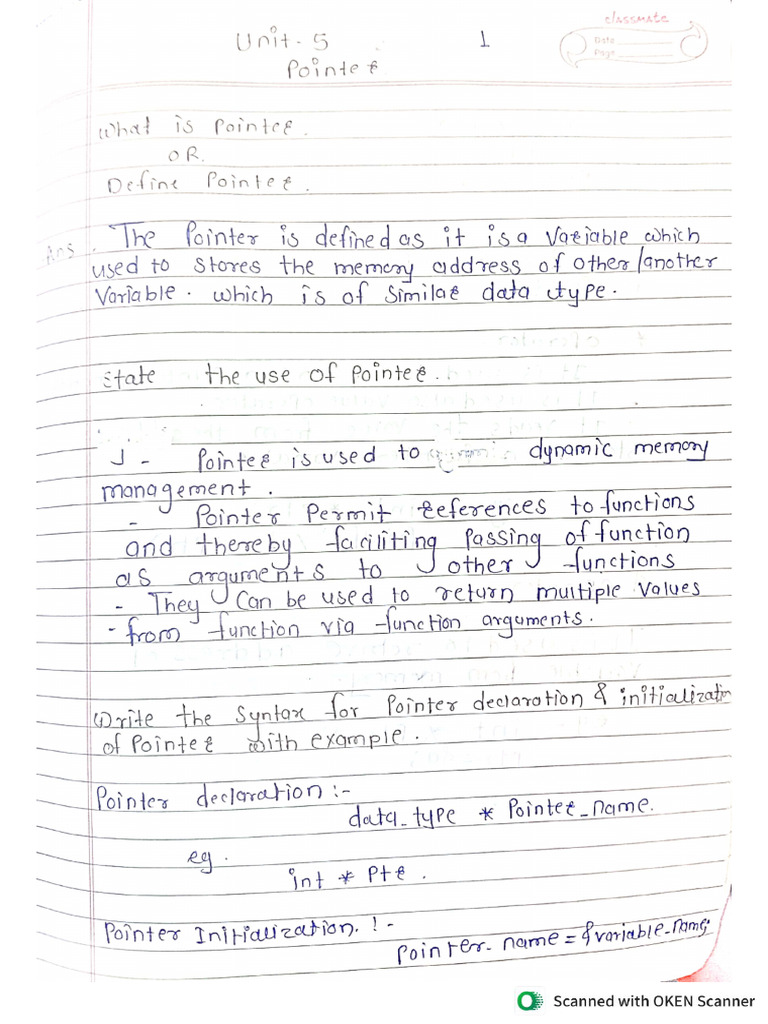 classmate
Date
Page
Unit-5
1
Pointer
What is Pointer.
OR.
Define Pointer.
Ans. The Pointer is defined as it is a Variable which
used to stores the memory address of other/another
Variable. which is of Similar data type.
State the use of Pointer.
- Pointer is used to dynamic memory
management.
- Pointer Permit References to functions
and thereby faciliting Passing of function
as arguments to other functions
- They Can be used to return multiple values
- from function via function arguments.
Write the Syntax for Pointer declaration & initialization
of Pointer with example.
Pointer declaration :-
data_type * Pointer_name.
eg.
int * Ptr.
Pointer Initialization. :-
Pointer_name = &variable_name;
Scanned with OKEN Scanner